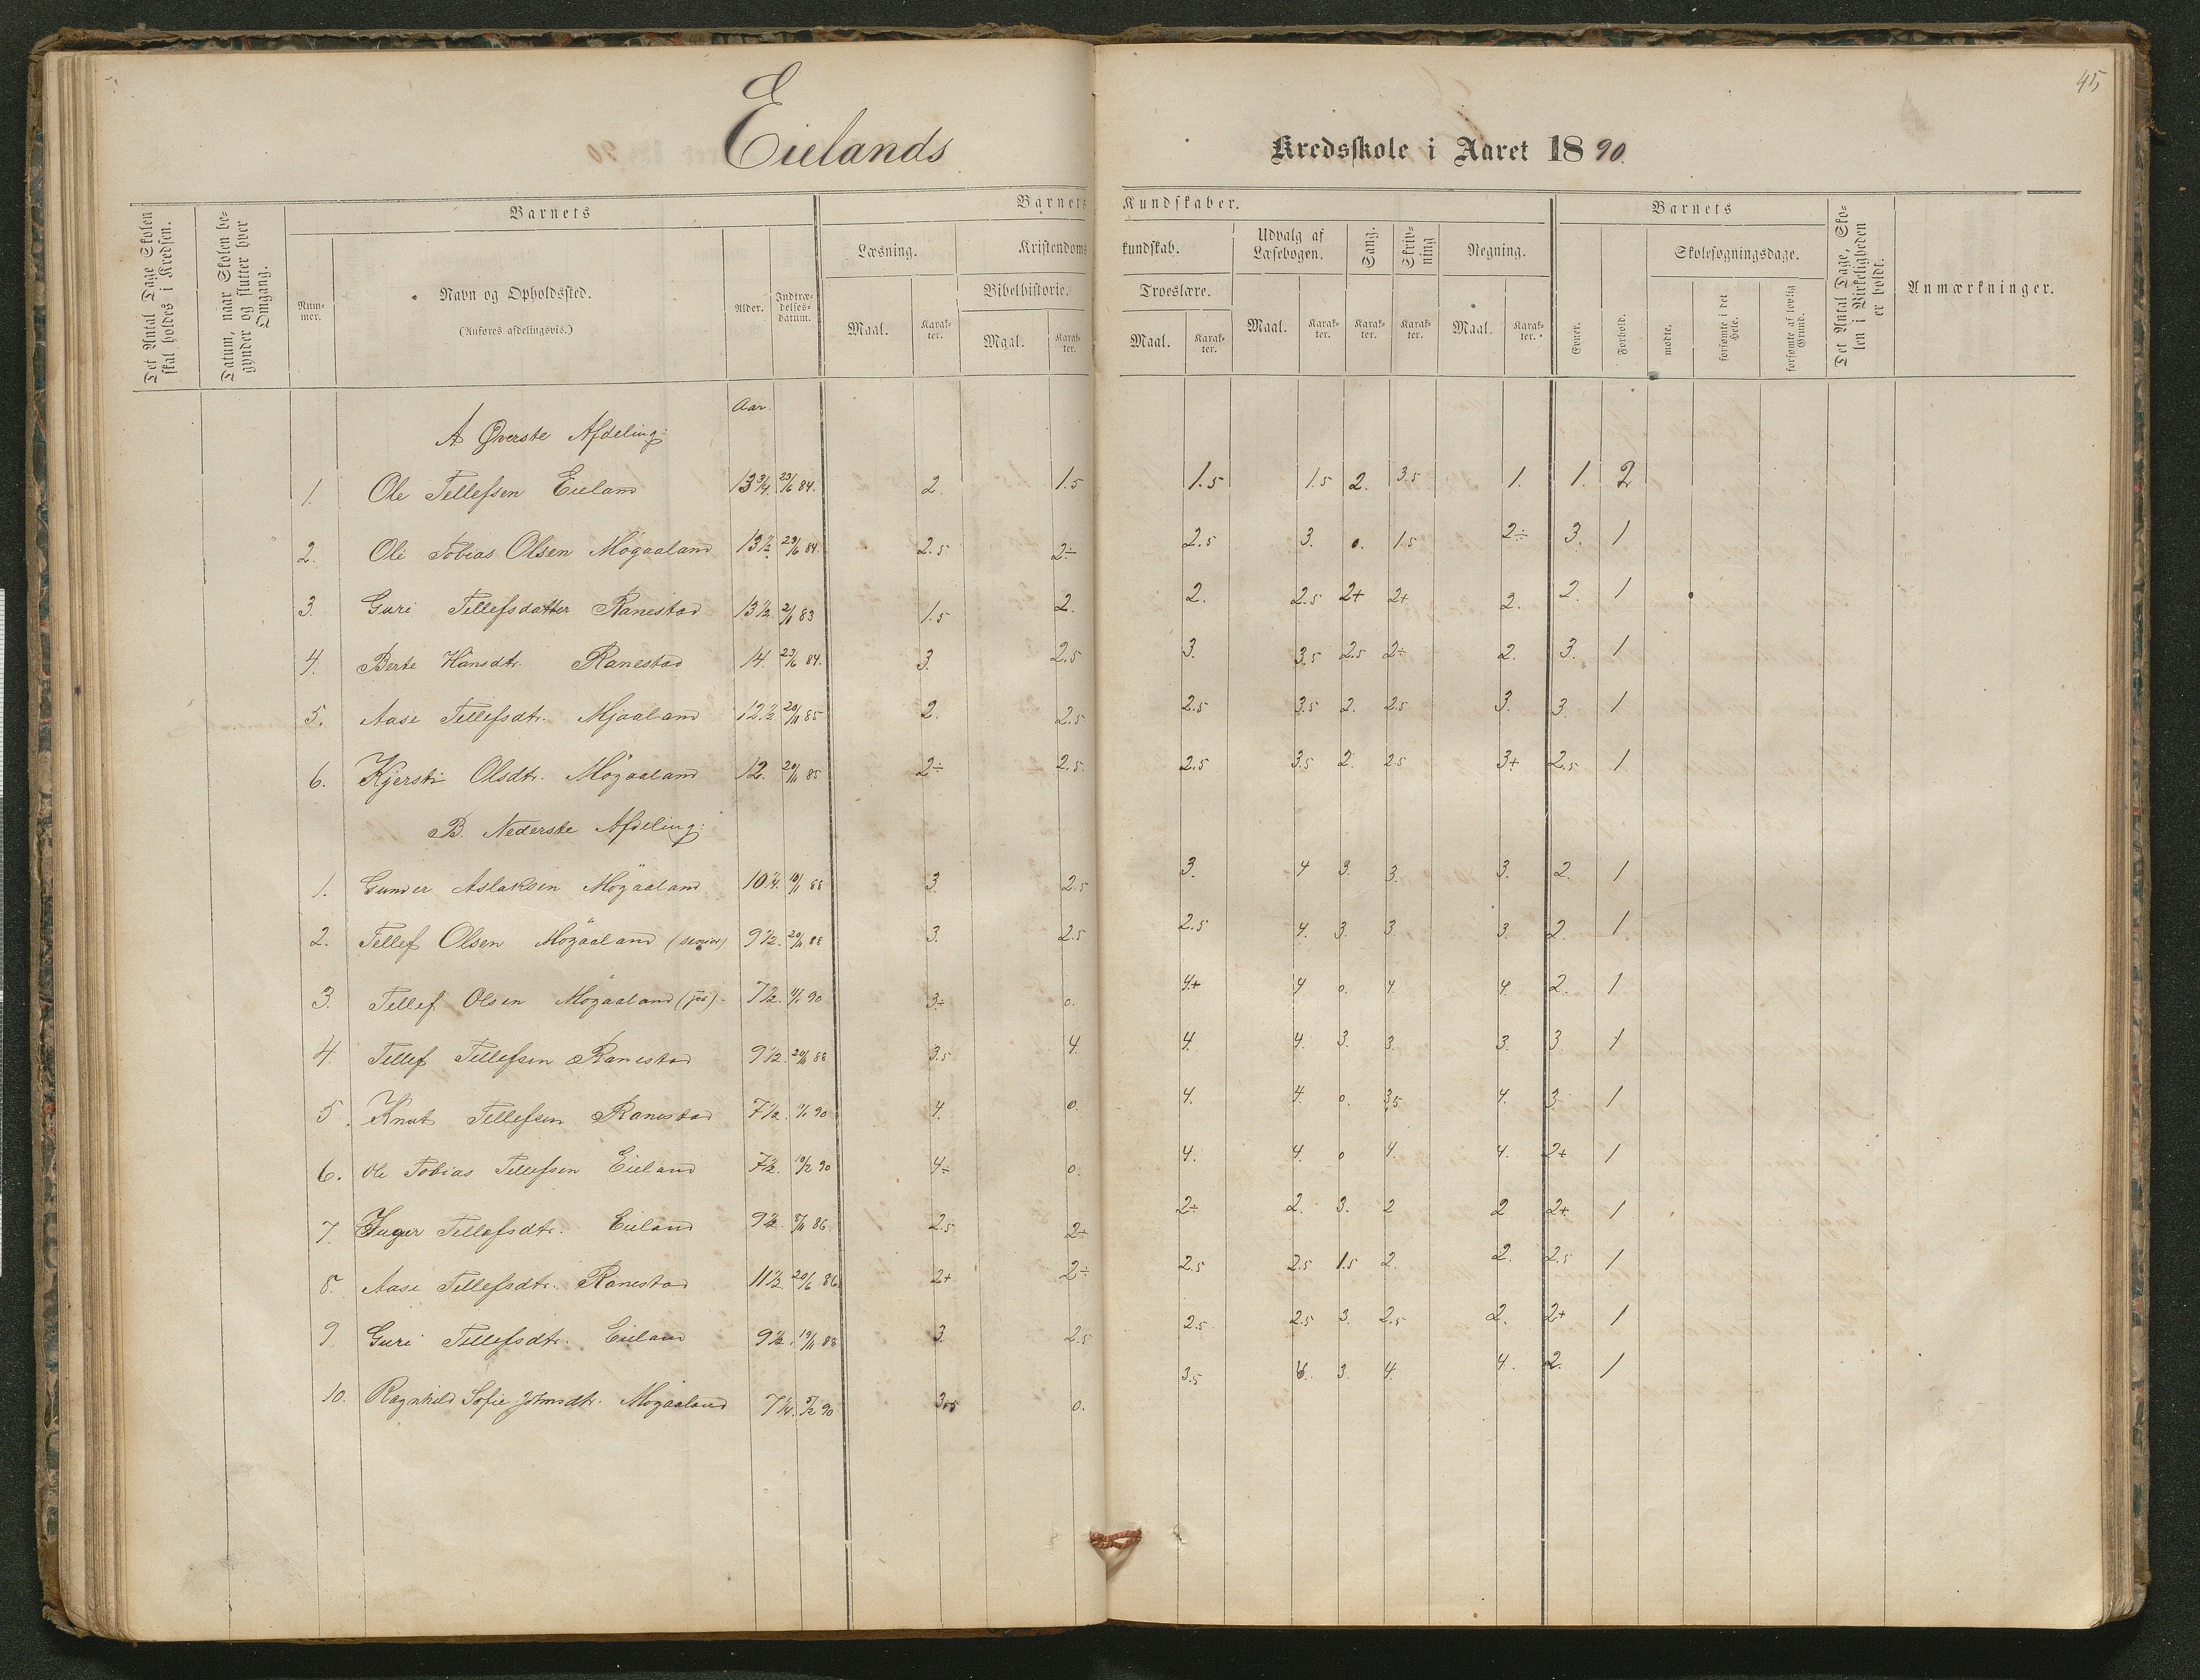 45
Eielands Kredsskole i Aaret 1890.
Det Antal Dage Skolen skal holdes i Kredsen.
Datum, naar Skolen begynder og slutter hver Omgang.
Barnets
Nummer.
Navn og Opholdssted.
(Anføres afdelingsvis.)
Alder.
Indtrædelsesdatum.
Barnets Kundskaber.
Læsning.
Maal. Karakter.
Kristendomskundskab.
Bibelhistorie.
Maal. Karakter.
Troeslære.
Maal. Karakter.
Udvalg af Læsebogen.
Maal. Karakter.
Sang.
Karakter.
Skrivning
Karakter.
Regning.
Maal. Karakter.
Barnets
Evner.
Forhold.
Skolesøgningsdage.
mødte.
forsømte i det Hele.
forsømte af lovlig Grund.
Det Antal Dage, Skolen i Virkeligheden er holdt.
Anmærkninger.
Aar.
A Øverste Afdeling:
1. Ole Tellefsen Eieland 13 3/4. 23/6 84. 2. 1.5 1.5 1.5 2. 3.5 1. 1. 2
2. Ole Tobias Olsen Møgaaland 13 1/2 23/6 84. 2.5 2÷ 2.5 3. 0. 1.5 2÷ 3. 1
3. Guri Tellefsdatter Ranestad 13 1/2. 83 1.5 2. 2. 2.5 2+ 2+ 2. 2. 1
4. Berte Hansdtr. Ranestad 14. 23/6 84. 3. 2.5 3. 3.5 2.5 2÷ 2. 3. 1
5. Aase Tellefsdtr. Mjaaland 12 1/2 20/11 85 2. 2.5 2.5 3.5 2. 2.5 3. 3. 1
6. Kjersti Olsdtr. Møgaaland 12. 20/11 85 2÷ 2.5. 2.5 3.5 2. 2.5 3+ 2.5 1
B. Nederste Afdeling:
1. Gunder Aslaksen Møgaaland 10 1/4. 88 3. 2.5 3. 4 3. 3. 3. 2. 1
2. Tellef Olsen Møgaaland (senior) 9 1/2. 20/11 88 3. 2.5 2.5 4. 3. 3. 3. 2. 1
3. Tellef Olsen Møgaaland (jr) 7 1/2. 90 3÷ 0. 4+ 4 0. 4. 4. 2. 1
4. Tellef Tellefsen Ranestad 9 1/2. 88 3.5 4. 4. 4. 3. 3. 3. 3. 1
5. Knut Tellefsen Ranestad 7 1/2. 90 4. 0. 4. 4. 0. 3.5 4. 3. 1
6. Ole Tobias Tellefsen Eieland 7 1/2. 10/2 90 4÷ 0. 4. 4. 0 4 4. 2+ 1
7. Inger Tellefsdtr. Eieland 9 1/2. 86. 2.5 2÷ 2÷ 2. 3. 2 2 2+ 1
8. Aase Tellefsdtr. Ranestad 11 1/2. 20/6 86 2+ 2÷ 2.5 2.5 1.5 2. 2. 2.5 1
9. Guri Tellefsdtr. Eieland 9 1/2. 19/11 88 3. 2.5 2.5 2.5 3. 2.5 2. 2+ 1
10. Ragnhild Sofie Johnsdtr. Møgaaland 7 1/4. 90 3.5 0. 3.5 3. 4. 4. 2. 1